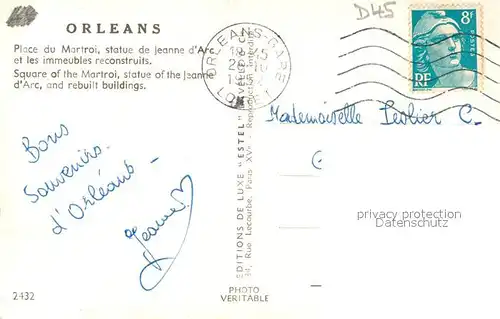 ORLEANS
Place du Martroi, statue de Jeanne d'Arc
et les immeubles reconstruits.
Square of the Martroi, statue of the Jeanne
d'Arc, and rebuilt buildings.
D45
ORLEANS-GARE
18 45
LOIRET
8F
POSTES
RF
Bons
Souvenirs
d'Orléans –
Jeanne
Mademoiselle
privacy protection
copyright protection
EDITIONS DE LUXE "ESTEL"
Rue Lecourbe, Paris - XVe - Reproduction
2432
PHOTO
VERITABLE